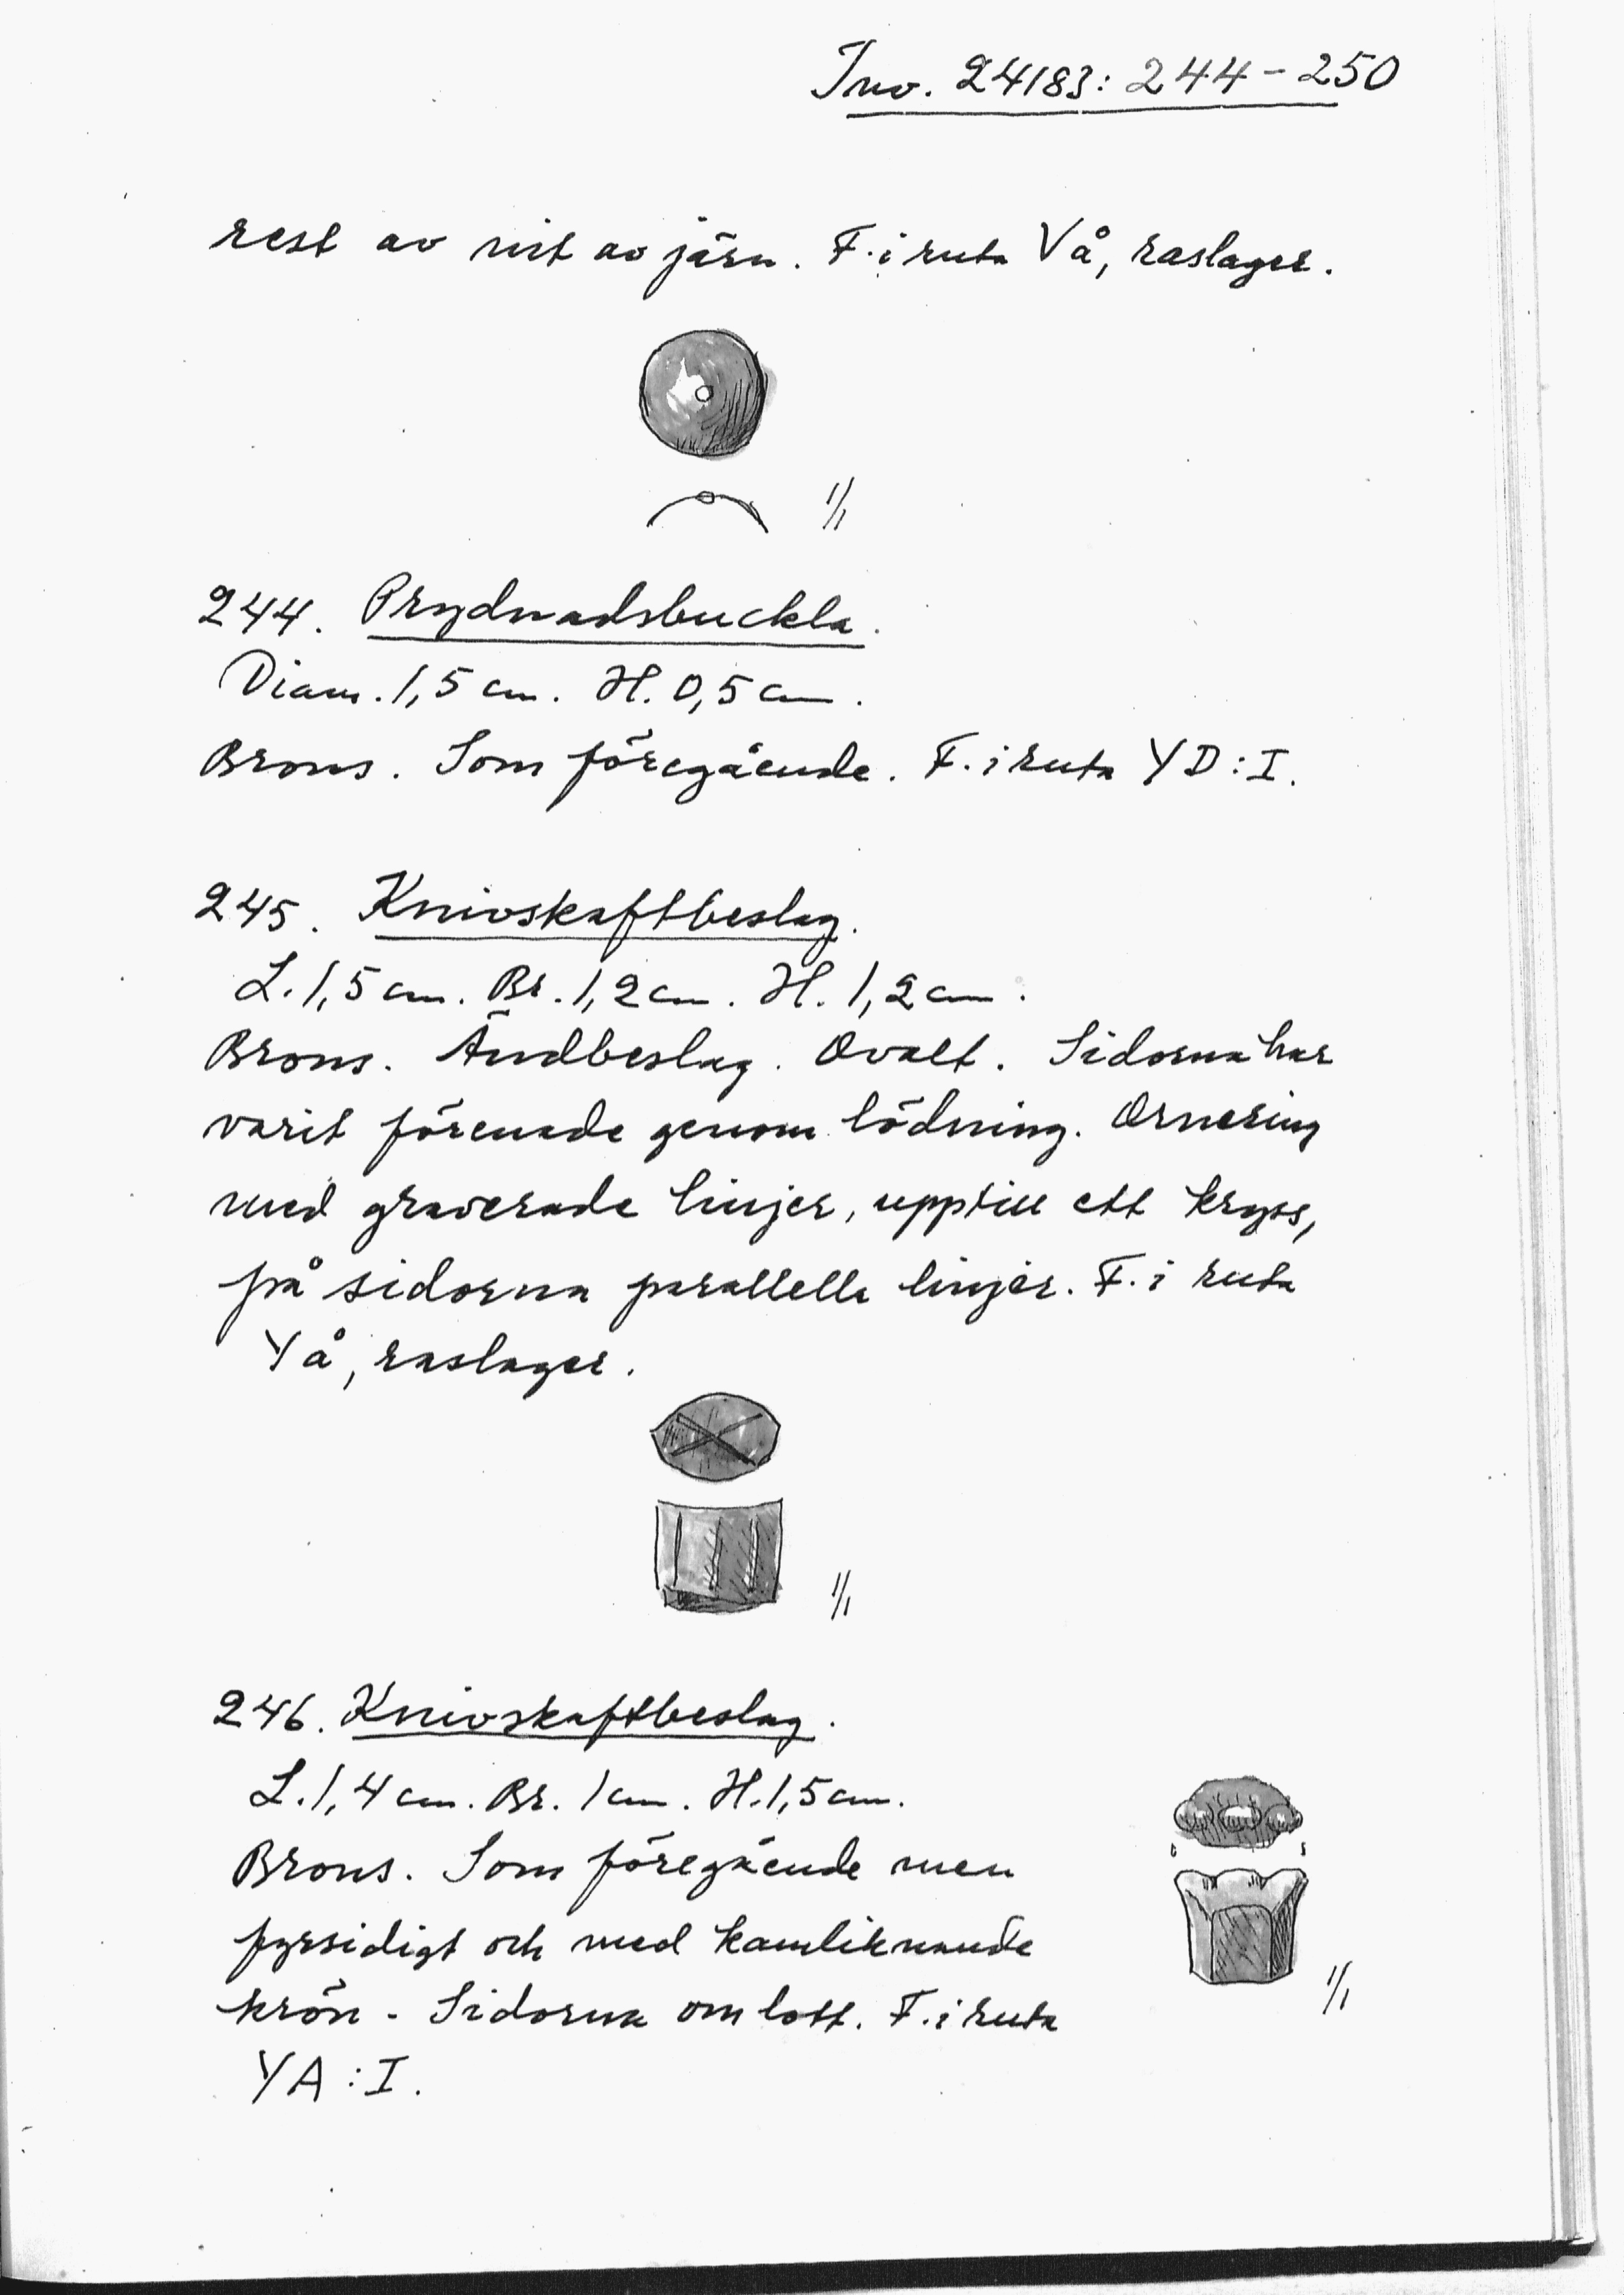 Inv. 24183: 244-250
rest av nit av järn. F. i ruta VÅ, raslager.
1/1
244. Prydnadsbuckla.
Diam. 1,5 cm. H. 0,5 cm.
Brons. Som föregående. F. i ruta YD:I.
245. Knivskaftbeslag.
L. 1,5 cm. Br. 1,2 cm. H. 1,2 cm.
Brons. Ändbeslag. Ovalt. Sidorna har
varit förenade genom lödning. Ornering
med graverade linjer, upptill ett kryss,
på sidorna parallella linjer. F. i ruta
YÅ, raslager.
1/1
246. Knivskaftbeslag.
L. 1,4 cm. Br. 1 cm. H. 1,5 cm.
Brons. Som föregående men
fyrsidigt och med kamliknande
krön - Sidorna omlott. F. i ruta
YA:I.
1/1